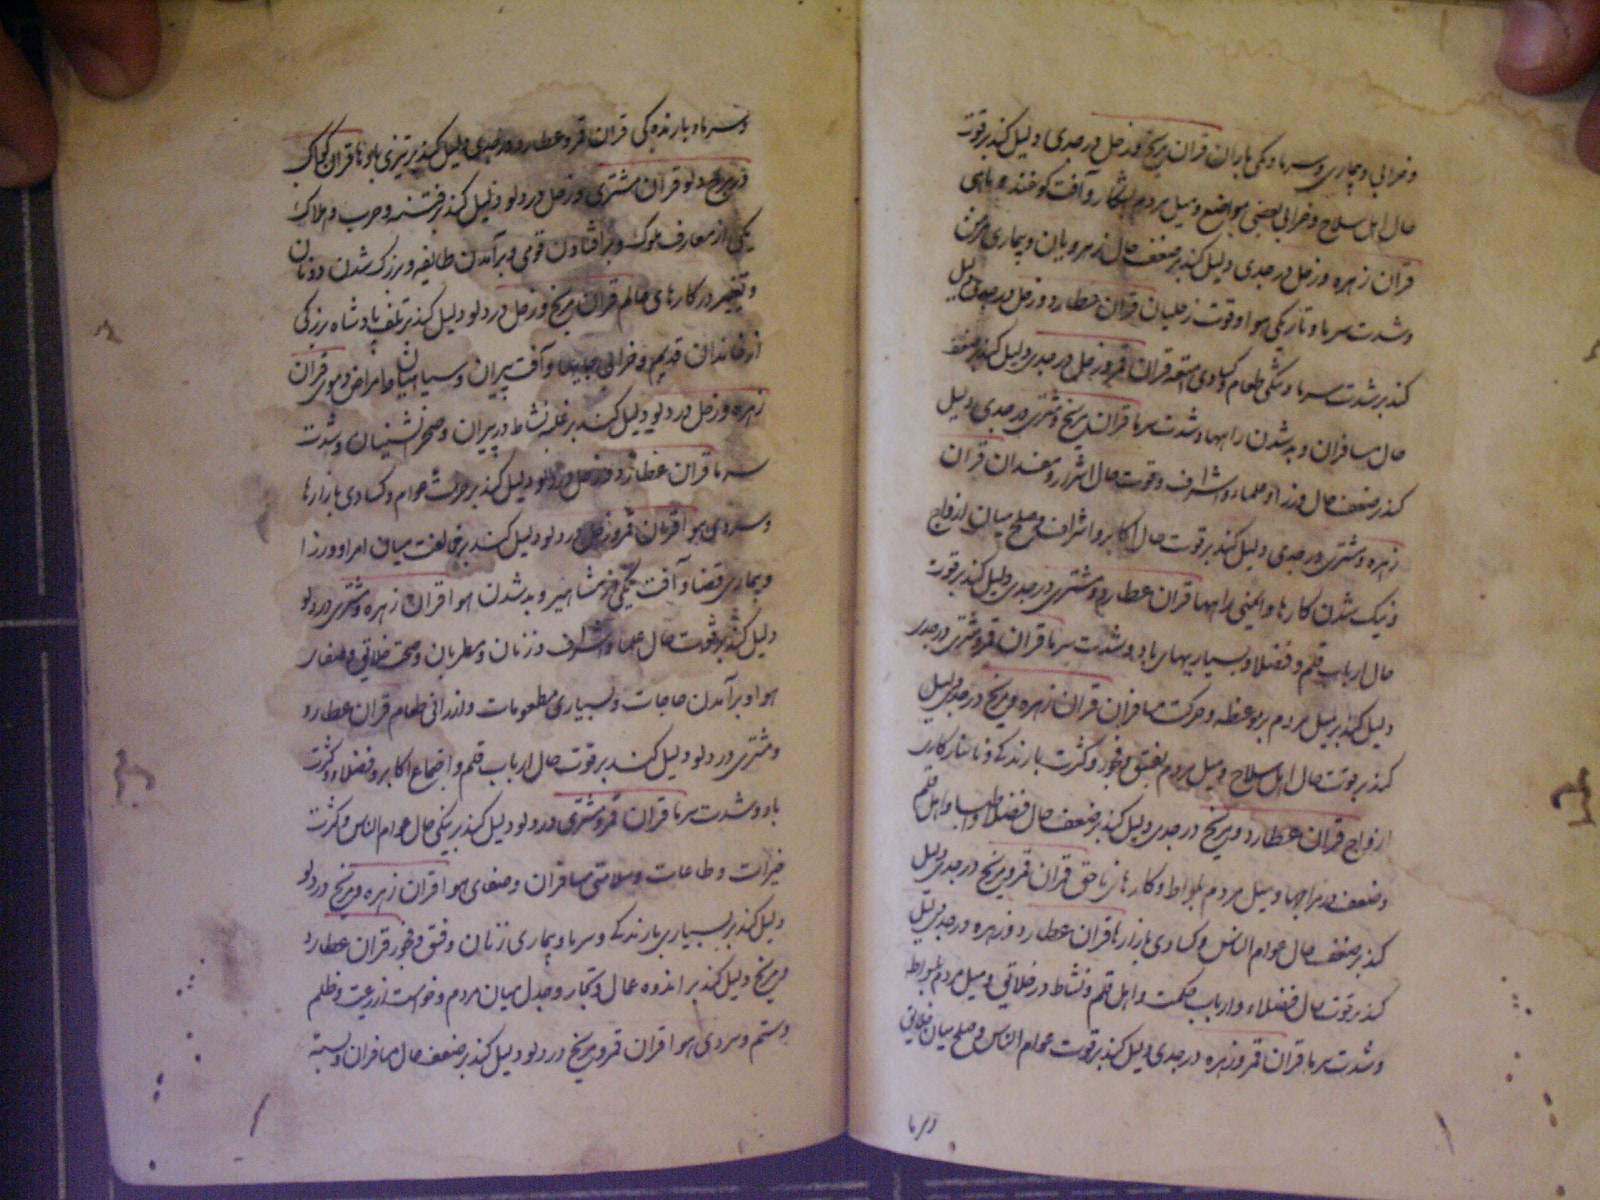 و خرابی و بیماری و سرما و کمی باران قران مریخ و زحل در جدی دلیل کند بر قوت
حال اهل سلاح و خرابی بعضی مواضع و میل مردم بشکار و آفت گوسفند و ماهی
قران زهره و زحل در جدی دلیل کند بر ضعف حال زهرویان و بیماری
و شدت سرما و تاریکی هوا و قوت زحلیان قران عطارد و زحل در جدی دلیل
کند بر شدت سرما و تنکی طعام و کسادی امتعه قران قمر و زحل در جدی دلیل کند بر ضعف
حال مسافران و بد شدن راهها و شدت سرما قران مریخ و مشتری در جدی دلیل
کند بر ضعف حال وزرا و علماء و اشراف و قوت حال اشرار و مفسدان قران
زهره و مشتری در جدی دلیل کند بر قوت حال اکابر و اشراف و صلح میان ازواج
و نیک شدن کارها و ایمنی راهها قران عطارد و مشتری در جدی دلیل کند بر قوت
حال ارباب قلم و فضلا و بسیاریهای باد و شدت سرما قران قمر و مشتری در جدی
دلیل کند بر میل مردم بموعظه و حرکت مسافران قران زهره و مریخ در جدی دلیل
کند بر قوت حال اهل سلاح و میل مردم بفسق و فجور و کثرت بارندکی و ناسازکاری
ازواج قران عطارد و مریخ در جدی دلیل کند بر ضعف حال فضلا و اطبا و اهل قلم
و ضعف در مزاجها و میل مردم بلواط و کارهای ناحق قران قمر و مریخ در جدی دلیل
کند بر ضعف حال عوام الناس و کسادی بازارها قران عطارد و زهره در جدی دلیل
کند بر قوت حال فضلاء و ارباب حکمت و اهل قلم و نشاط در خلایق و میل مردم بلواطه
و شدت سرما قران قمر و زهره در جدی دلیل کند بر قوت عوام الناس و صلح میان خلایق
و سرما
و سرما و بارندکی قران قمر و عطارد در جدی دلیل کند بر تیزی بادها قران کواکب
در برج دلو قران مشتری و زحل در دلو دلیل کند بر فتنه و حرب و هلاک
یکی از معارف ملوک و بر افتادن قومی و برآمدن طایفه و بزرک شدن دونان
و تغییر در کارهای عالم قران مریخ و زحل در دلو دلیل کند بر تلف پادشاه بزرکی
از خاندان قدیم و خرابی و آفت پیران و سیاهان و امراض دموی قران
زهره و زحل در دلو دلیل کند بر غلبه نشاط در پیران و صحرانشینان و شدت
سرما قران عطارد و زحل در دلو دلیل کند بر عوام و کسادی بازارها
و سردی هوا قران قمر و زحل در دلو دلیل کند بر مخالفت میان امرا و وزرا
و بیماری قضا و آفت یکی از مشاهیر و بد شدن هوا قران زهره و مشتری در دلو
دلیل کند بر قوت حال علما و اشراف و زنان و مطربان و صحت خلایق و صفای
هوا و برآمدن حاجات و بسیاری مطعومات و ارزانی طعام قران عطارد
و مشتری در دلو دلیل کند بر قوت حال ارباب قلم و اجتماع اکابر و فضلاء و کثرت
باد و شدت سرما قران قمر و مشتری در دلو دلیل کند بر نیکی حال عوام الناس و کثرت
خیرات و طاعات و سلامتی مسافران و صفای هوا قران زهره و مریخ در دلو
دلیل کند بر بسیاری بارندکی و سرما و بیماری زنان و فسق و فجور قران عطارد
و مریخ دلیل کند بر اندوه عمال و تجار و جدل میان مردم و خواست از رعیت و ظلم
و ستم و سردی هوا قران قمر و مریخ در دلو دلیل کند بر ضعف حال مسافران و بسته